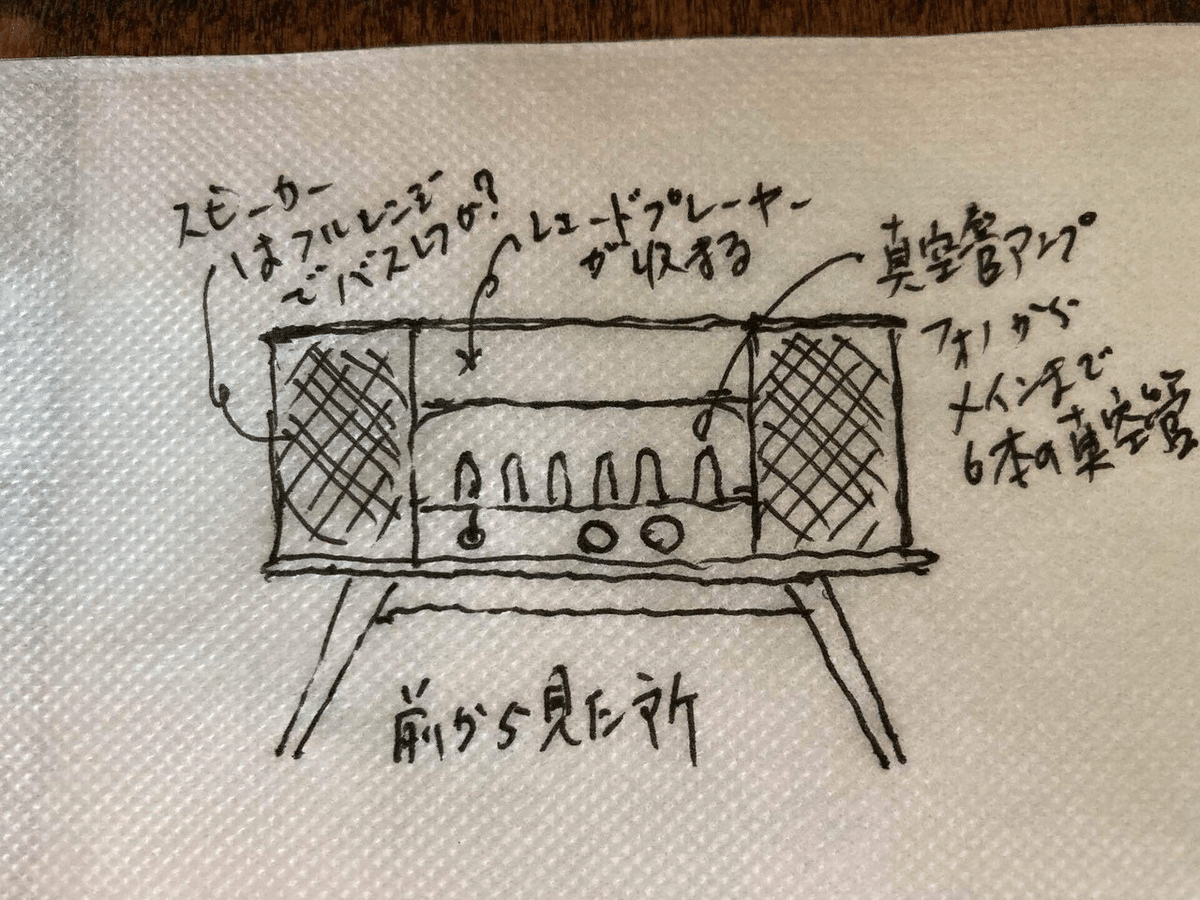 スピーカー
はフルレンジ
でバスレフか?
レコードプレーヤー
が収まる
真空管アンプ
フォノから
メインまで
6本の真空管
前から見た所